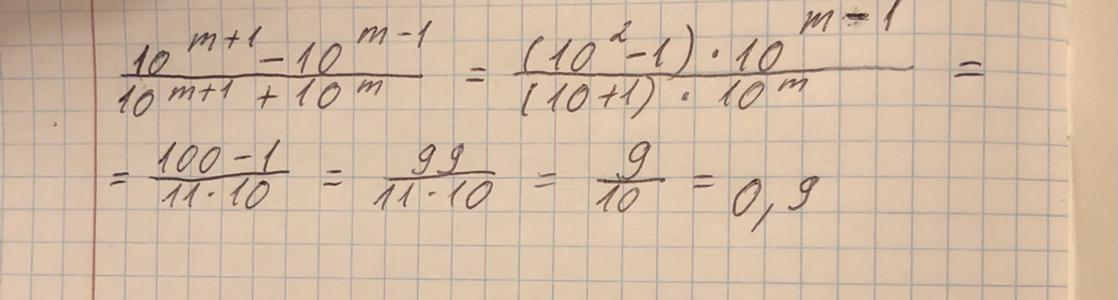 \frac{10^{m+1} - 10^{m-1}}{10^{m+1} + 10^{m}} = \frac{(10^{2} - 1) \cdot 10^{m-1}}{(10+1) \cdot 10^{m}} =
= \frac{100 - 1}{11 \cdot 10} = \frac{99}{11 \cdot 10} = \frac{9}{10} = 0,9